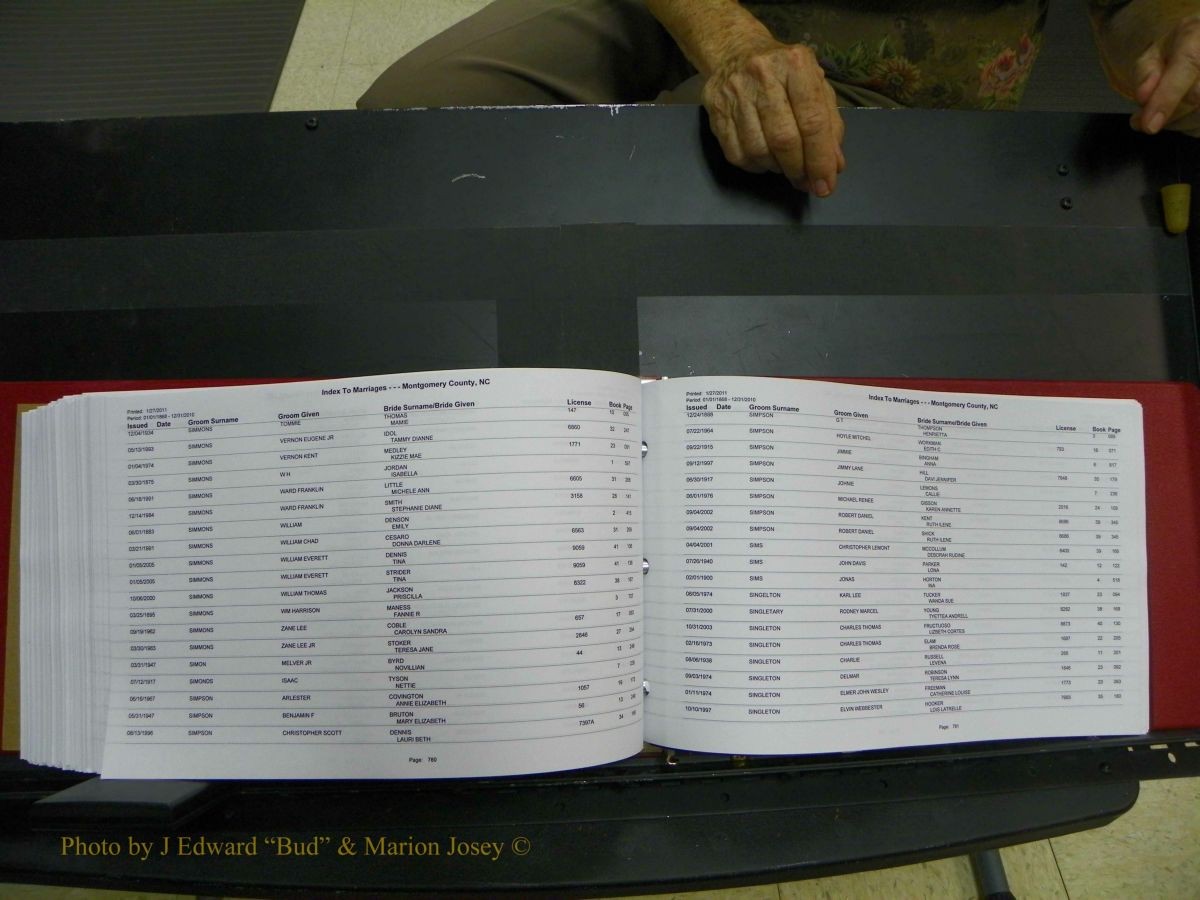 Index To Marriages - - - Montgomery County, NC
Printed: 1/27/2011
Period: 01/01/1868 - 12/31/2010
Issued Date Groom Surname Groom Given Bride Surname/Bride Given License Book Page
12/04/1934 SIMMONS TOMMIE THOMAS 147 10
MAMIE
05/13/1993 SIMMONS VERNON EUGENE JR IDOL 6860 32 247
TAMMY DIANNE
01/04/1974 SIMMONS VERNON KENT MEDLEY 1771 23 091
KIZZIE MAE
03/30/1875 SIMMONS W H JORDAN 1
ISABELLA
06/18/1991 SIMMONS WARD FRANKLIN LITTLE 6605 31
MICHELE ANN
12/14/1984 SIMMONS WARD FRANKLIN SMITH 3158 28 141
STEPHANIE DIANE
06/01/1883 SIMMONS WILLIAM DENSON 2 415
EMILY
03/21/1991 SIMMONS WILLIAM CHAD CESARO 6563 31
DONNA DARLENE
01/05/2005 SIMMONS WILLIAM EVERETT DENNIS 9059 41
TINA
01/05/2005 SIMMONS WILLIAM EVERETT STRIDER 9059 41
TINA
10/06/2000 SIMMONS WILLIAM THOMAS JACKSON 8322 38
PRISCILLA
03/25/1895 SIMMONS WM HARRISON MANESS
FANNIE R
09/19/1962 SIMMONS ZANE LEE COBLE 657 17
CAROLYN SANDRA
03/30/1983 SIMMONS ZANE LEE JR STOKER 2646 27
TERESA JANE
03/31/1947 SIMON MELVER JR BYRD 44 13
NOVILLIAN
07/12/1917 SIMONDS ISAAC TYSON 7
NETTIE
06/16/1967 SIMPSON ARLESTER COVINGTON 1057 19
ANNIE ELIZABETH
05/31/1947 SIMPSON BENJAMIN F BRUTON 56 13
MARY ELIZABETH
06/13/1996 SIMPSON CHRISTOPHER SCOTT DENNIS 7397A 34
LAURI BETH
Page: 780
Index To Marriages - - - Montgomery County, NC
Printed: 1/27/2011
Period: 01/01/1868 - 12/31/2010
Issued Date Groom Surname Groom Given Bride Surname/Bride Given License Book Page
12/24/1888 SIMPSON G T THOMPSON
HENRIETTA
07/22/1964 SIMPSON HOYLE MITCHEL WORKMAN 783 18 071
EDITH C
09/22/1915 SIMPSON JIMMIE BINGHAM 6 617
ANNA
09/12/1997 SIMPSON JIMMY LANE HILL 35 179
DAVI JENNIFER
06/30/1917 SIMPSON JOHNIE LEMONS 7
CALLIE
06/01/1976 SIMPSON MICHAEL RENEE GIBSON 24 109
KAREN ANNETTE
09/04/2002 SIMPSON ROBERT DANIEL KENT 8686 39 345
RUTH ILENE
09/04/2002 SIMPSON ROBERT DANIEL SHICK 8686 39 345
RUTH ILENE
04/04/2001 SIMS CHRISTOPHER LEMONT MCCOLLUM 39
DEBORAH RUDINE
07/26/1940 SIMS JOHN DAVIS PARKER 142 12 122
LONA
02/01/1900 SIMS JONAS HORTON 4 518
INA
06/05/1974 SINGELTON KARL LEE TUCKER 1837 23
WANDA SUE
07/31/2000 SINGLETARY RODNEY MARCEL YOUNG 38
TYETTEA ANDRELL
10/31/2003 SINGLETON CHARLES THOMAS FRUCTUOSO 40 130
LIZBETH CORTES
02/16/1973 SINGLETON CHARLES THOMAS ELAM 22 205
BRENDA ROSE
08/06/1938 SINGLETON CHARLIE RUSSELL 11 201
LEVENA
09/03/1974 SINGLETON DELMAR ROBINSON 23
TERESA LYNN
01/11/1974 SINGLETON ELMER JOHN WESLEY FREEMAN 1773 23
CATHERINE LOUISE
10/10/1997 SINGLETON ELVIN WEBBESTER HOOKER 35
LOIS LATRELLE
Page: 781
Photo by J Edward “Bud” & Marion Josey ©